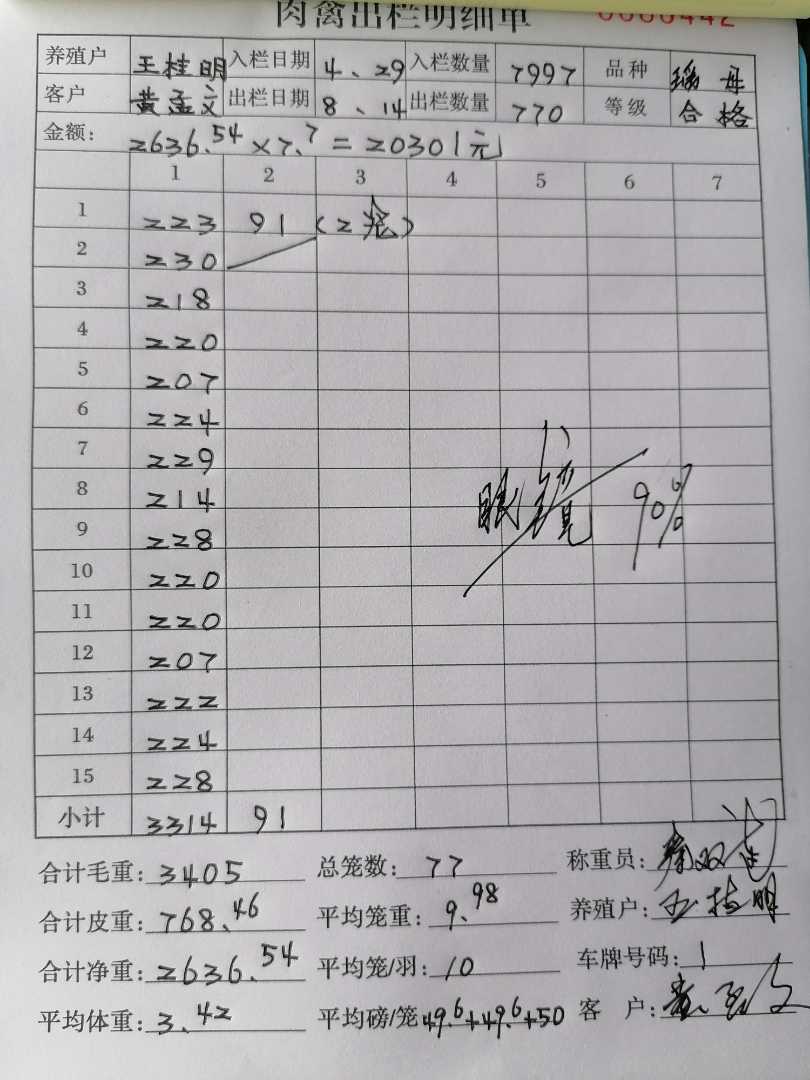 肉禽出栏明细单 0000442
养殖户 王桂明 入栏日期 4、29 入栏数量 7997 品种 瑶母
客户 黄孟文 出栏日期 8、14 出栏数量 770 等级 合格
金额: 2636.54×7.7=20301元
1 2 3 4 5 6 7
1 223 91 (2笼)
2 230
3 218
4 220
5 207
6 224
7 229
8 214 眼镜 90%
9 228
10 220
11 220
12 207
13 222
14 224
15 228
小计 3314 91
合计毛重: 3405 总笼数: 77 称重员:
合计皮重: 768.46 平均笼重: 9.98 养殖户: 王桂明
合计净重: 2636.54 平均笼/羽: 10 车牌号码: 1
平均体重: 3.42 平均磅/笼 49.6+49.6+50 客 户: 黄孟文